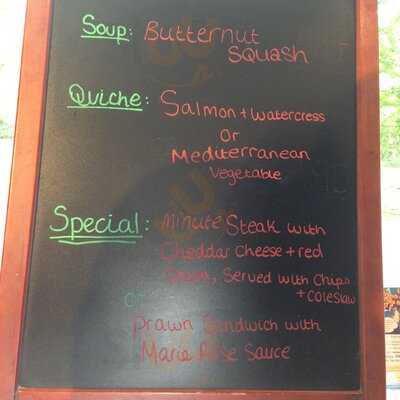 Soup: Butternut
Squash
Quiche: Salmon + Watercress
or
Mediterranean
Vegetable
Special: Minute Steak with
Cheddar Cheese + red
Onion, Served with Chips
+ Coleslaw
or
Prawn Sandwich with
Marie Rose Sauce